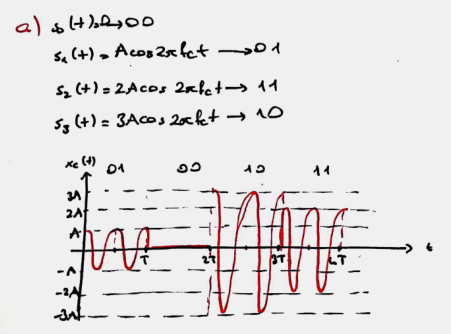 a) s₀(t)=0→00
s₁(t)=Acos2πfct→01
s₂(t)=2Acos2πfct→11
s₃(t)=3Acos2πfct→10
xc(t) 01 00 10 11
3A
2A
A
T 2T 3T 4T t
-A
-2A
-3A